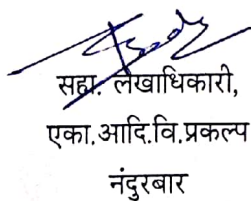 सहा. लेखाधिकारी,
एका.आदि.वि.प्रकल्प
नंदुरबार